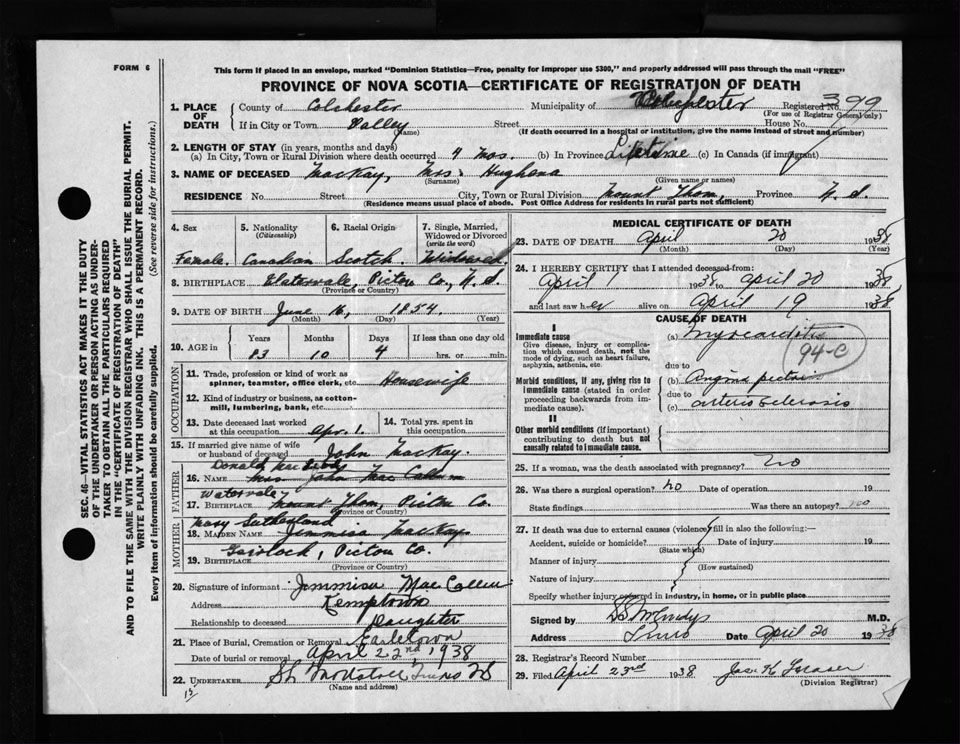 FORM 6
This form if placed in an envelope, marked "Dominion Statistics—Free, penalty for improper use $300," and properly addressed will pass through the mail "FREE"
PROVINCE OF NOVA SCOTIA—CERTIFICATE OF REGISTRATION OF DEATH
1. PLACE OF DEATH County of Colchester Municipality of Colchester Registered No. 399
(For use of Registrar General only)
If in City or Town Valley Street House No.
(Name) (If death occurred in a hospital or institution, give the name instead of street and number)
2. LENGTH OF STAY (in years, months and days)
(a) In City, Town or Rural Division where death occurred 4 mos. (b) In Province Lifetime (c) In Canada (if immigrant)
3. NAME OF DECEASED MacKay, Mrs. Hughena
(Surname) (Given name or names)
RESIDENCE No. Street City, Town or Rural Division Mount Thom, Province N.S.
(Residence means usual place of abode. Post Office Address for residents in rural parts not sufficient)
4. Sex 5. Nationality (Citizenship) 6. Racial Origin 7. Single, Married, Widowed or Divorced (write the word)
Female. Canadian Scotch. Widowed.
8. BIRTHPLACE Pictou Co., N.S.
(Province or Country)
9. DATE OF BIRTH June 16, 1854.
(Month) (Day) (Year)
10. AGE in Years Months Days If less than one day old
83 10 4 hrs. or min.
OCCUPATION
11. Trade, profession or kind of work as spinner, teamster, office clerk, etc. Housewife
12. Kind of industry or business, as cotton-mill, lumbering, bank, etc.
13. Date deceased last worked at this occupation Apr. 1. 14. Total yrs. spent in this occupation
15. If married give name of wife or husband of deceased John MacKay.
FATHER
Donald
16. NAME Mrs. John Mac
Watervale
17. BIRTHPLACE Mount Thom, Pictou Co.
(Province or Country)
MOTHER
Mary Sutherland
18. MAIDEN NAME Jimmisa MacKay
19. BIRTHPLACE Gairloch, Pictou Co.
(Province or Country)
20. Signature of informant Mac
Address Kemptown
Relationship to deceased Daughter
21. Place of Burial, Cremation or Removal Earltown
Date of burial or removal April 22nd, 1938
22. UNDERTAKER Truro NS
(Name and address)
MEDICAL CERTIFICATE OF DEATH
23. DATE OF DEATH April 20 1938
(Month) (Day) (Year)
24. I HEREBY CERTIFY that I attended deceased from:
April 1 1938 to April 20 1938
and last saw her alive on April 19 1938
CAUSE OF DEATH
I
Immediate cause (a) Myocarditis
94-C
Give disease, injury or complication which caused death, not the mode of dying, such as heart failure, asphyxia, asthenia, etc.
due to
Morbid conditions, if any, giving rise to immediate cause (stated in order proceeding backwards from immediate cause). (b) Angina pectoris
due to
(c) arterio sclerosis
II
Other morbid conditions (if important) contributing to death but not causally related to immediate cause.
25. If a woman, was the death associated with pregnancy? No
26. Was there a surgical operation? No Date of operation 19
State findings Was there an autopsy? no
27. If death was due to external causes (violence) fill in also the following:—
Accident, suicide or homicide? Date of injury 19
(State which)
Manner of injury
(How sustained)
Nature of injury
Specify whether injury occurred in industry, in home, or in public place
Signed by M.D.
Address Truro Date April 20 1938
28. Registrar's Record Number
29. Filed April 23rd 1938 Jas. K. Fraser
(Division Registrar)
SEC. 46—VITAL STATISTICS ACT MAKES IT THE DUTY
OF THE UNDERTAKER OR PERSON ACTING AS UNDER-
TAKER TO OBTAIN ALL THE PARTICULARS REQUIRED
IN THE "CERTIFICATE OF REGISTRATION OF DEATH"
AND TO FILE THE SAME WITH THE DIVISION REGISTRAR WHO SHALL ISSUE THE BURIAL PERMIT.
WRITE PLAINLY WITH UNFADING INK. THIS IS A PERMANENT RECORD.
Every item of information should be carefully supplied. (See reverse side for instructions.)